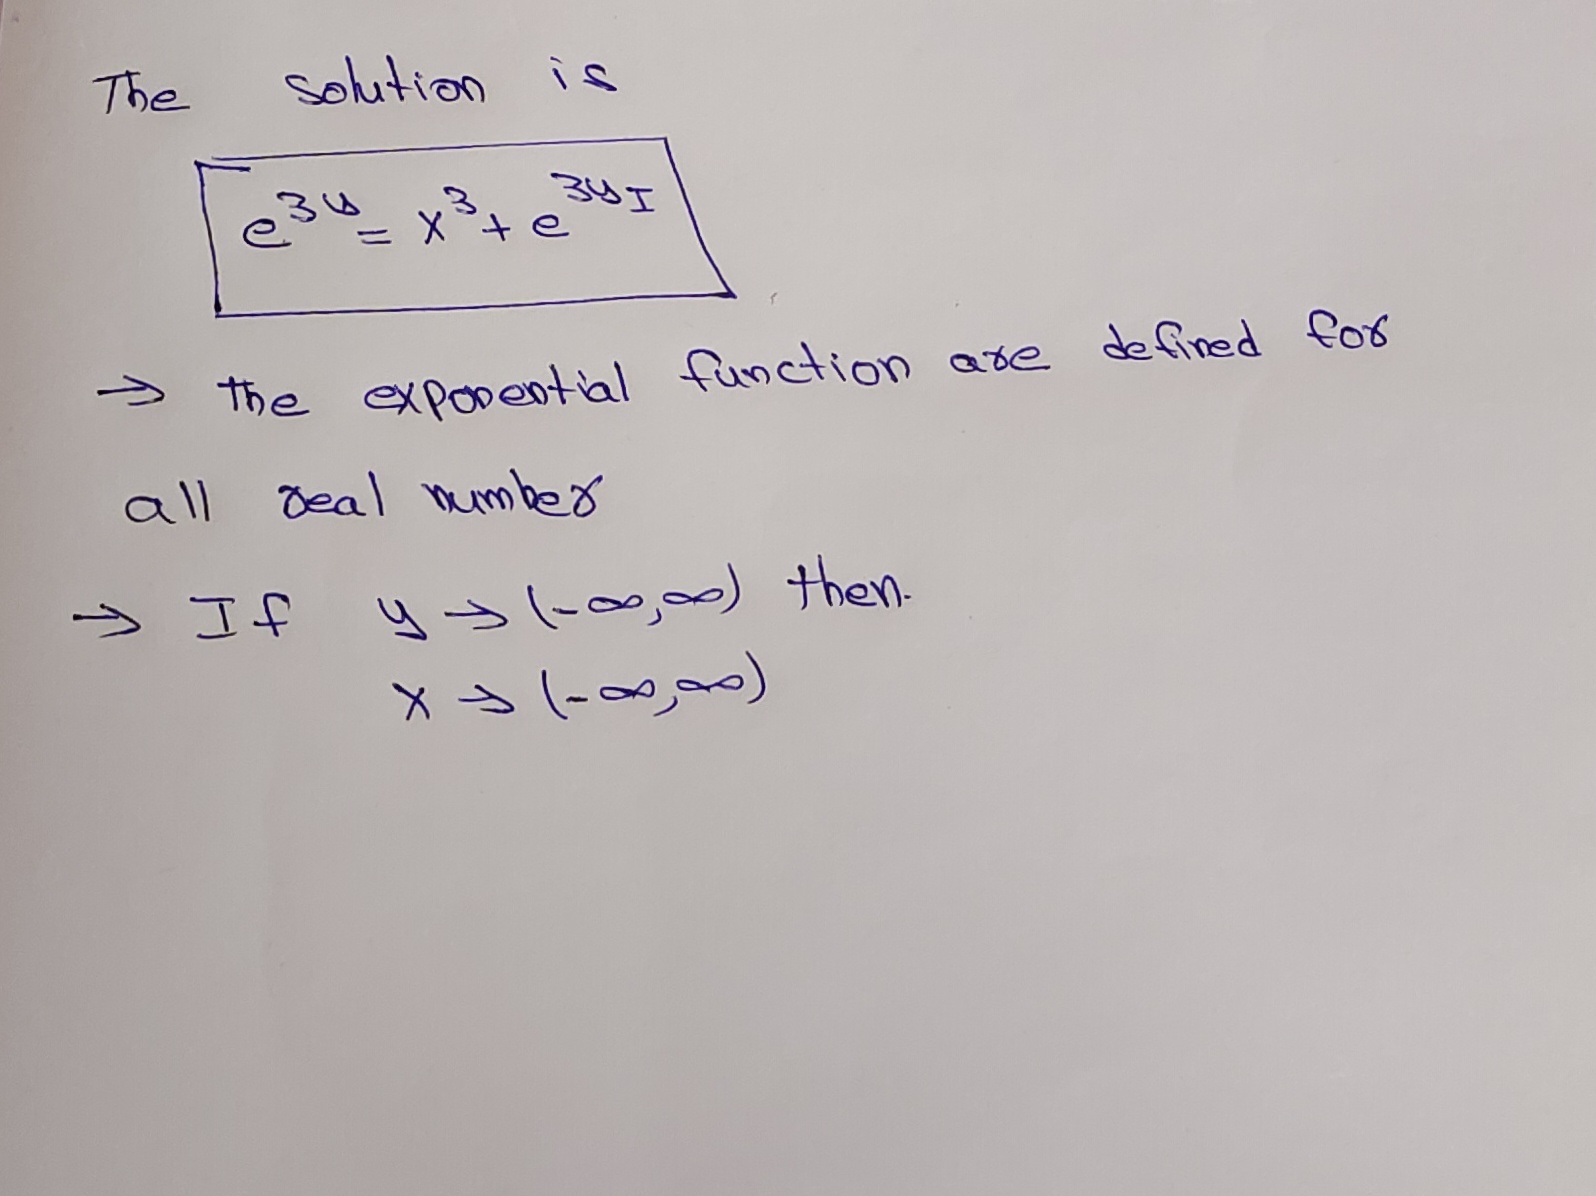 The solution is
e^{3y} = x^3 + e^{3y_I}
→ the exponential function are defined for
all real number
→ If y → (-∞,∞) then.
x → (-∞,∞)